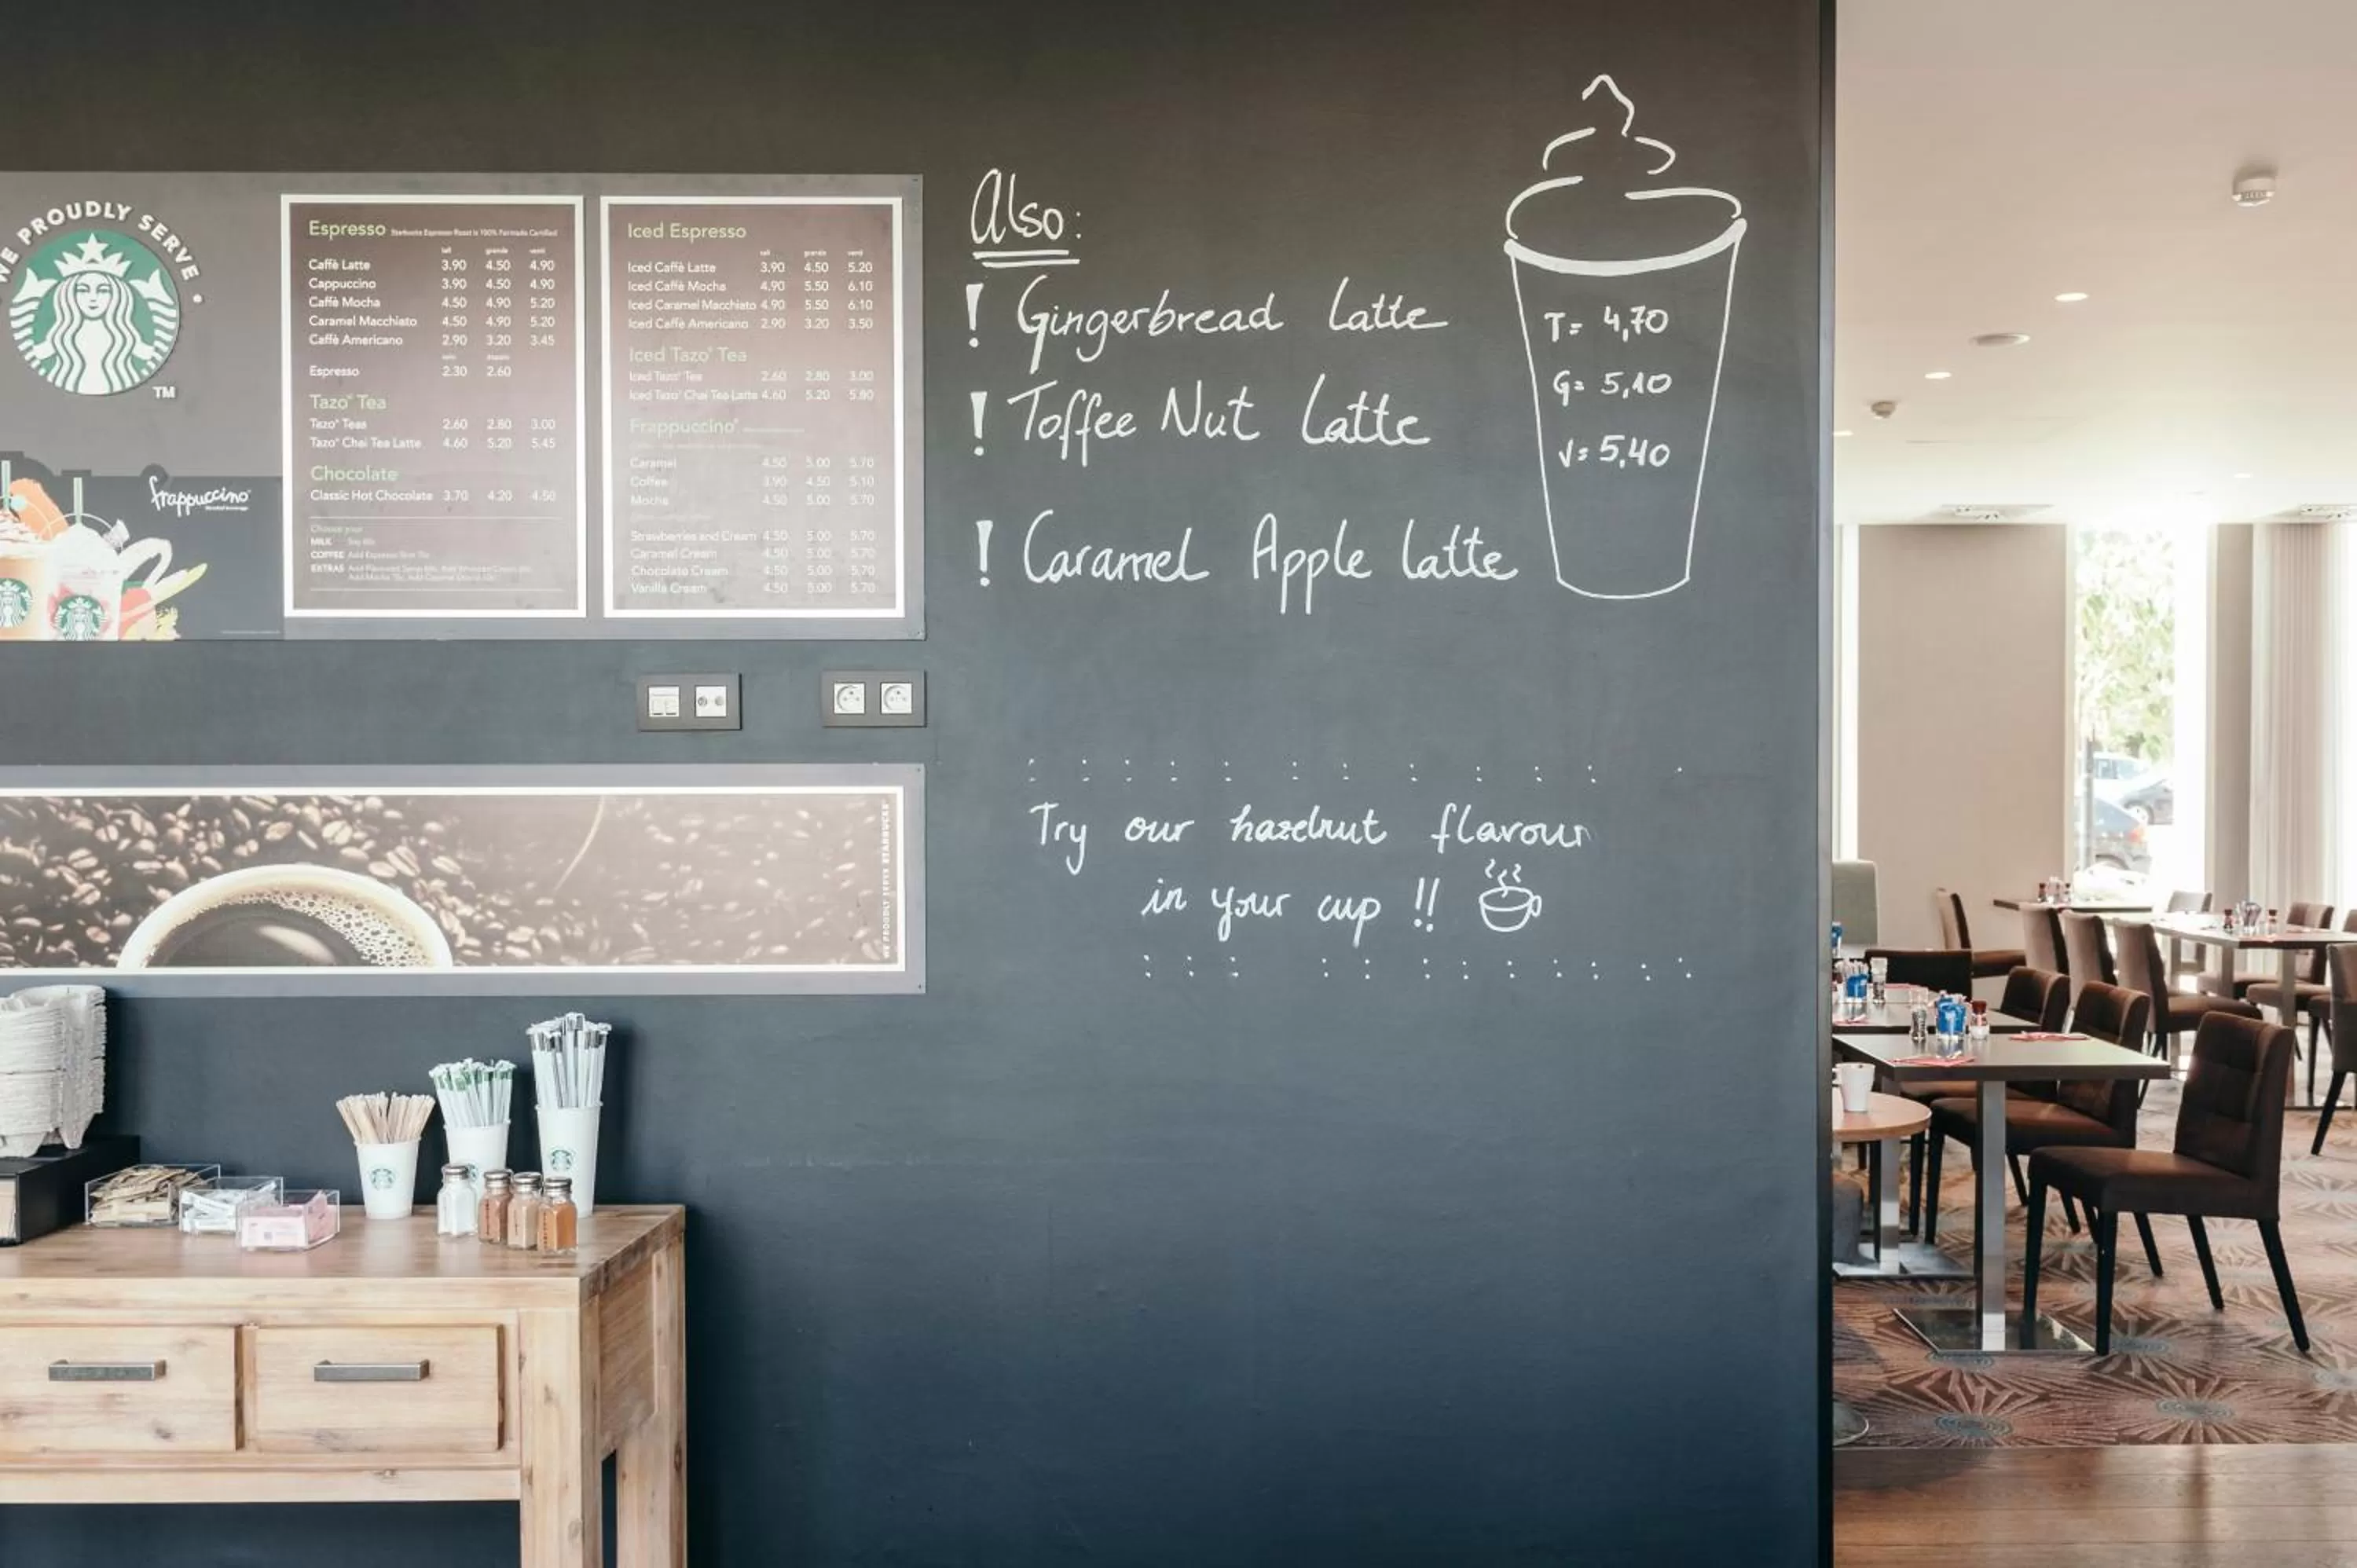 WE PROUDLY SERVE
TM
frappuccino
Espresso Starbucks Espresso Roast is 100% Fairtrade Certified
tall grande venti
Caffè Latte 3.90 4.50 4.90
Cappuccino 3.90 4.50 4.90
Caffè Mocha 4.50 4.90 5.20
Caramel Macchiato 4.50 4.90 5.20
Caffè Americano 2.90 3.20 3.45
solo doppio
Espresso 2.30 2.60
Tazo® Tea
Tazo® Teas 2.60 2.80 3.00
Tazo® Chai Tea Latte 4.60 5.20 5.45
Chocolate
Classic Hot Chocolate 3.70 4.20 4.50
Choose your
MILK
COFFEE Add Espresso Shot
EXTRAS
Iced Espresso
tall grande venti
Iced Caffè Latte 3.90 4.50 5.20
Iced Caffè Mocha 4.90 5.50 6.10
Iced Caramel Macchiato 4.90 5.50 6.10
Iced Caffè Americano 2.90 3.20 3.50
Iced Tazo® Tea
Iced Tazo® Tea 2.60 2.80 3.00
Iced Tazo® Chai Tea Latte 4.60 5.20 5.80
Frappuccino®
Caramel 4.50 5.00 5.70
Coffee 3.90 4.50 5.10
Mocha 4.50 5.00 5.70
Strawberries and Cream 4.50 5.00 5.70
Caramel Cream 4.50 5.00 5.70
Chocolate Cream 4.50 5.00 5.70
Vanilla Cream 4.50 5.00 5.70
Also:
! Gingerbread Latte
! Toffee Nut Latte
! Caramel Apple Latte
T= 4,70
G= 5,10
V= 5,40
Try our hazelnut flavour
in your cup !!
WE PROUDLY SERVE STARBUCKS